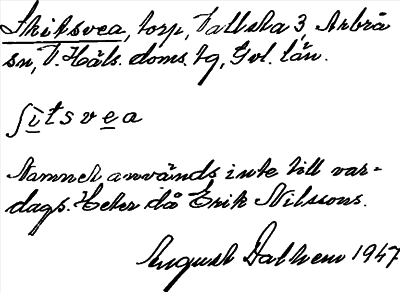 Skitsvea, torp, Vallsta 3, Arbrå
sn, V. Häls. doms. tg, Gvl. län.
ʃi̲tsve̲a
Namnet används inte till var-
dags. Heter då Erik Nilssons.
August Dalhem 1947